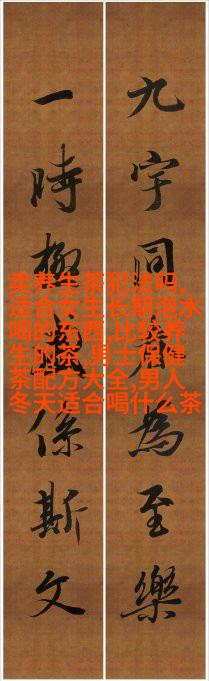 九宇同為至樂
一時係斯文
卖养生茶犯法吗,
适合女生长期泡水
喝的东西,比较养
生的茶,男士保健
茶配方大全,男人
冬天适合喝什么茶